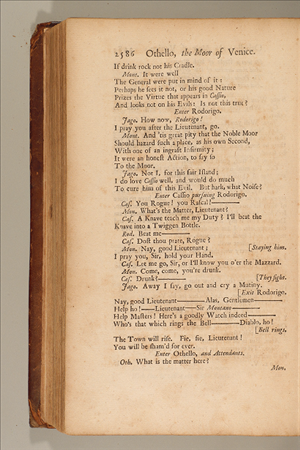 2586 Othello, the Moor of Venice.
If drink rock not his Cradle.
Mont. It were well
The General were put in mind of it:
Perhaps he sees it not, or his good Nature
Prizes the Virtue that appears in Cassio,
And looks not on his Evils: Is not this true?
Enter Rodorigo.
Jago. How now, Rodorigo!
I pray you after the Lieutenant, go.
Mont. And 'tis great pity that the Noble Moor
Should hazard such a place, as his own Second,
With one of an ingraft Infirmity;
It were an honest Action, to say so
To the Moor.
Jago. Not I, for this fair Island;
I do love Cassio well, and would do much
To cure him of this Evil. But hark, what Noise?
Enter Cassio pursuing Rodorigo.
Cas. You Rogue! you Rascal!
Mon. What's the Matter, Lieutenant?
Cas. A Knave teach me my Duty? I'll beat the
Knave into a Twiggen Bottle.
Rod. Beat me———
Cas. Dost thou prate, Rogue?
Mon. Nay, good Lieutenant; [Staying him.
I pray you, Sir, hold your Hand.
Cas. Let me go, Sir, or I'll know you o'er the Mazzard.
Mon. Come, come, you're drunk.
Cas. Drunk?——— [They fight.
Jago. Away I say, go out and cry a Mutiny.
[Exit Rodorigo.
Nay, good Lieutenant———Alas, Gentlemen———
Help ho!———Lieutenant———Sir Montano———
Help Masters! Here's a goodly Watch indeed———
Who's that which rings the Bell———Diablo, ho!
[Bell rings.
The Town will rise. Fie, fie, Lieutenant!
You will be sham'd for ever.
Enter Othello, and Attendants.
Oth. What is the matter here?
Mon.